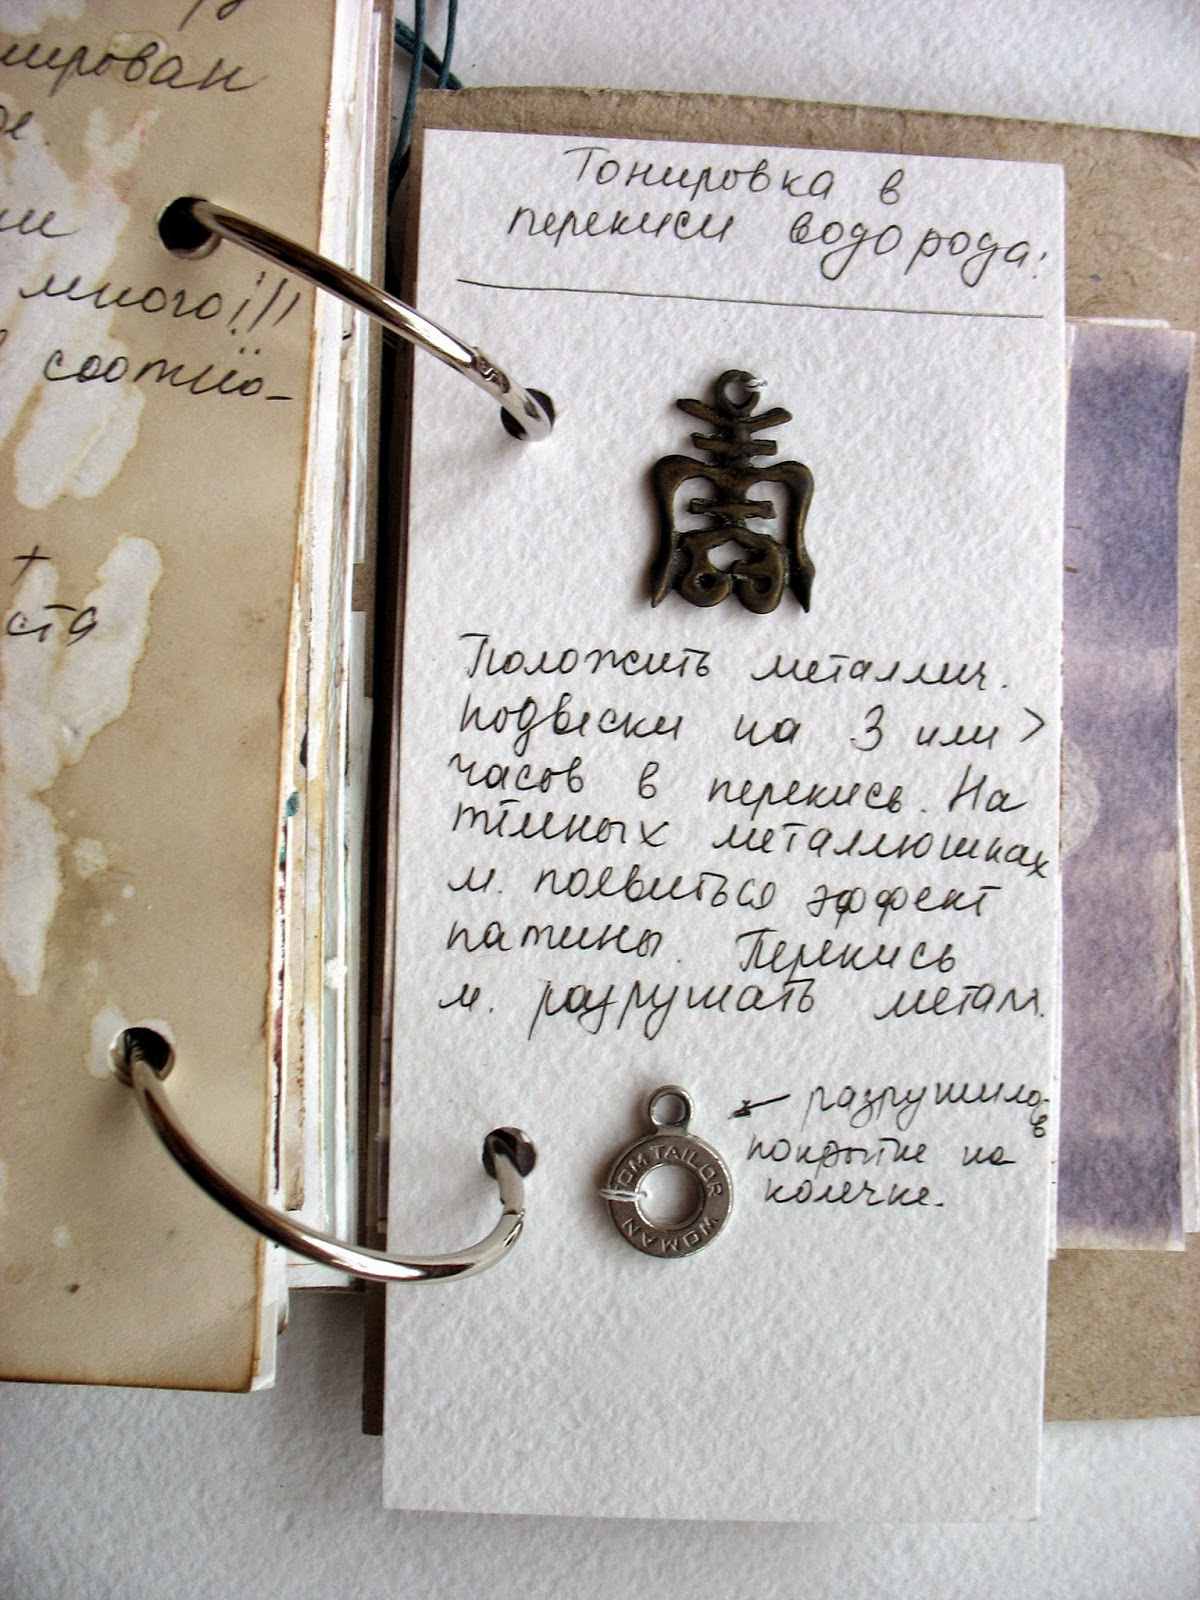 ирован
ми
много!!!
соотно-
+
ста
Тонировка в
перекиси водорода:
Положить металлич.
подвески на 3 или >
часов в перекись. На
тёмных металлюшках
м. появиться эффект
патины. Перекись
м. разрушать металл.
← разрушилось
покрытие на
колечке.
TOM TAILOR
WOMAN